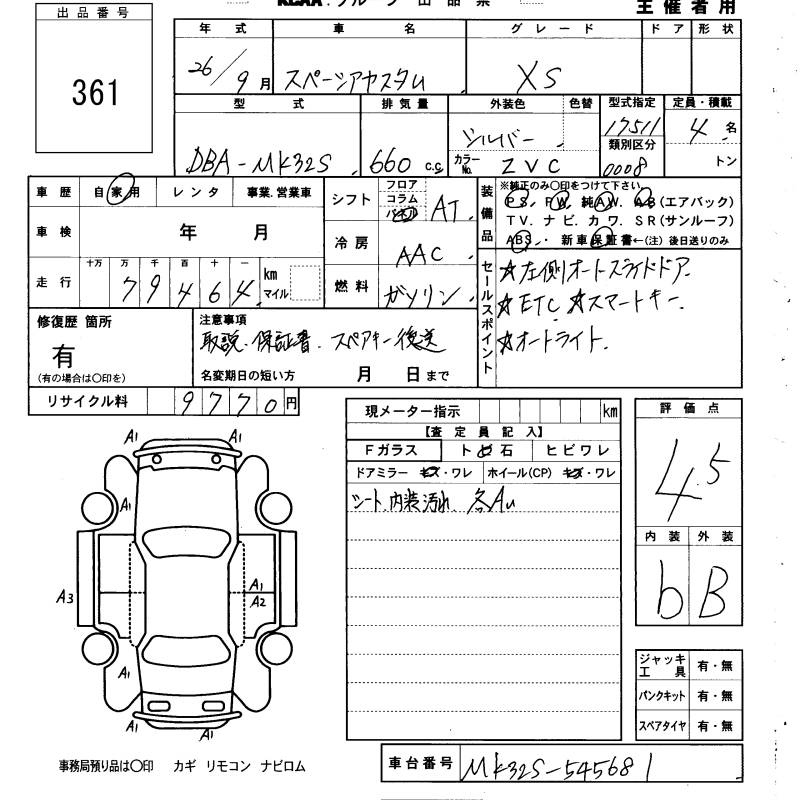 KCAA・グループ 出品票
主催者用
出品番号
361
年式 車名 グレード ドア 形状
26/9月 スペーシアカスタム XS
型式 排気量 外装色 色替 型式指定 定員・積載
DBA-MK32S 660 c.c. シルバー 17511 4名
類別区分
カラーNo. ZVC 0008 トン
車歴 自家用 レンタ 事業.営業車
車検 年 月
走行 十万 万 千 百 十 一
79464 km マイル
シフト フロア コラム パネル AT
冷房 AAC
燃料 ガソリン
装備品
※純正のみ○印をつけて下さい
PS. PW. 純AW. AB(エアバック)
TV. ナビ. カワ. SR(サンルーフ)
ABS. 新車保証書←(注) 後日送りのみ
セールスポイント
☆左側オートスライドドア
☆ETC ☆スマートキー
☆オートライト
修復歴 箇所
有
(有の場合は○印を)
注意事項
取説 保証書 スペアキー後送
名変期日の短い方 月 日まで
リサイクル料 9770円
現メーター指示 km
【査定員記入】
Fガラス トビ石 ヒビワレ
ドアミラー キズ・ワレ ホイール(CP) キズ・ワレ
シート、内装汚れ 各AU
評価点
4.5
内装 外装
b B
A1 A1
A1 A1
A1
A3 A2
A1
A1 A1
ジャッキ工具 有・無
パンクキット 有・無
スペアタイヤ 有・無
事務局預り品は○印 カギ リモコン ナビロム
車台番号 MK32S-545681